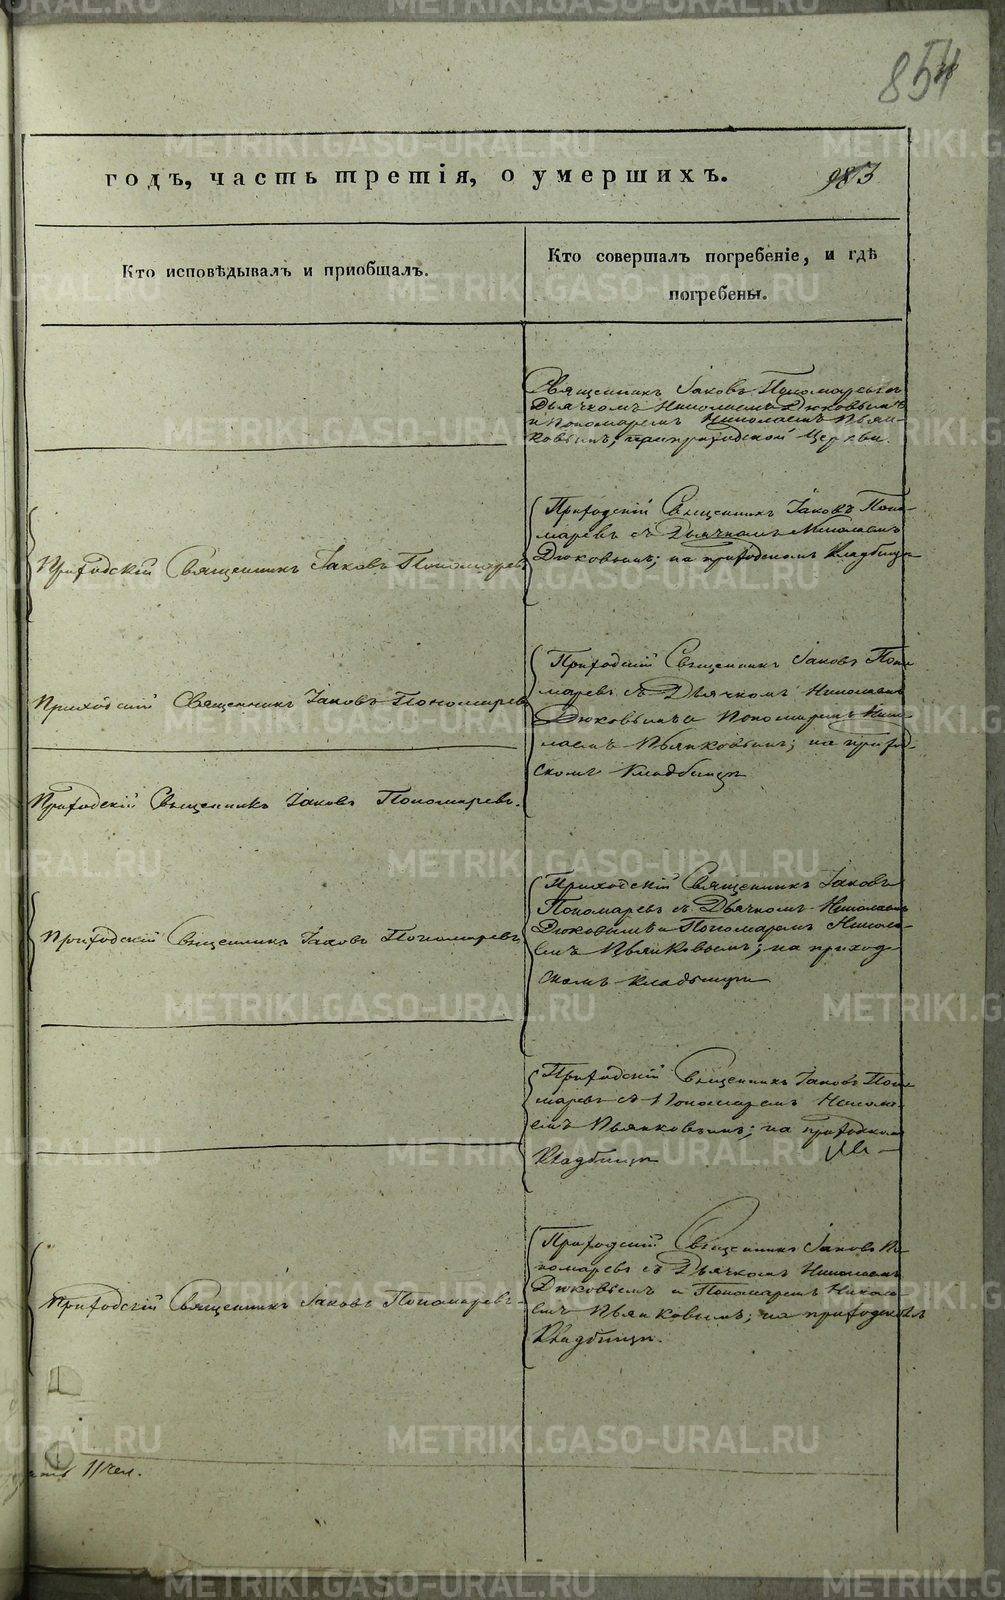 854
годъ, часть третія, о умершихъ.
983
Кто исповѣдывалъ и пріобщалъ.
Кто совершалъ погребеніе, и гдѣ
погребены.
Священникъ Іаковъ Пономаревъ съ
Дьячкомъ Николаемъ Дюковымъ
и Пономаремъ Николаемъ Пьян-
ковымъ; при приходской Церкви.
Приходскій Священникъ Іаковъ Пономаревъ
Приходскій Священникъ Іаковъ Поно-
маревъ съ Дьячкомъ Николаемъ
Дюковымъ; на приходскомъ Кладбищѣ
Приходскій Священникъ Іаковъ Пономаревъ
Приходскій Священникъ Іаковъ Поно-
маревъ съ Дьячкомъ Николаемъ
Дюковымъ и Пономаремъ Нико-
лаемъ Пьянковымъ; на приход-
скомъ Кладбищѣ
Приходскій Священникъ Іаковъ Пономаревъ.
Приходскій Священникъ Іаковъ Пономаревъ
Приходскій Священникъ Іаковъ
Пономаревъ съ Дьячкомъ Николаемъ
Дюковымъ и Пономаремъ Никола-
емъ Пьянковымъ; на приход
скомъ кладбищѣ
Приходскій Священникъ Іаковъ Поно
маревъ съ Пономаремъ Никола-
емъ Пьянковымъ; на приходском
Кладбищѣ
Приходскій Священникъ Іаковъ Пономаревъ
Приходскій Священникъ Іаковъ По-
номаревъ съ Дьячкомъ Николаемъ
Дюковымъ и Пономаремъ Никола-
емъ Пьянковымъ; на приходскомъ
Кладбищѣ.
11 чел.
METRIKI.GASO-URAL.RU